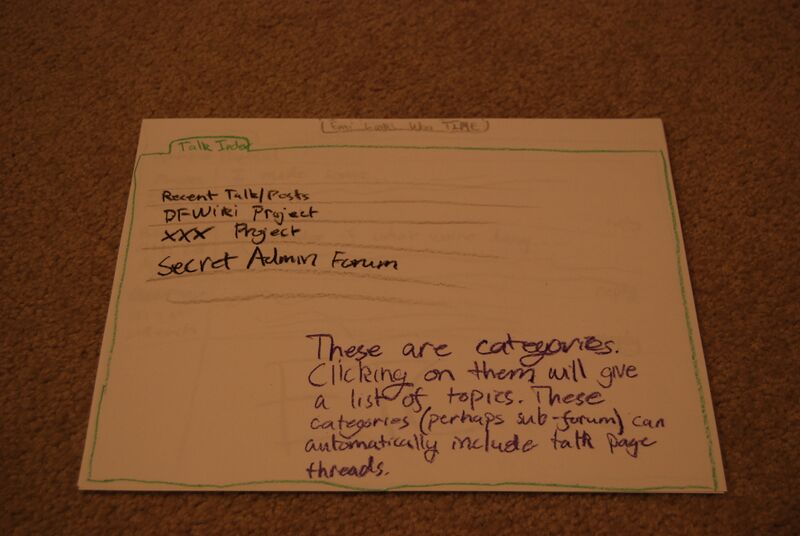 TIME
Talk Index
Recent Talk/Posts
DFWiki Project
XXX Project
Secret Admin Forum
These are categories.
Clicking on them will give
a list of topics. These
categories (perhaps sub-forum) can
automatically include talk page
threads.